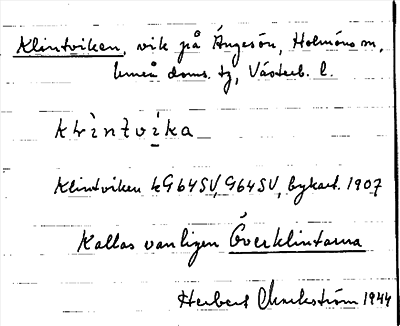 Klintviken, vik på Ängesön, Holmöns sn,
Umeå doms. tg, Västerb. l.
klìntvi̱ka
Klintviken kG64SV, G64SV, bykart. 1907
Kallas vanligen Överklintarna
Herbert 1944